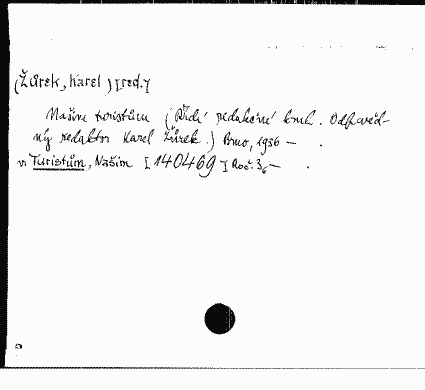 (Žůrek, Karel) [red.]
Našim turistům (Řídí redakční kruh. Odpověd-
ný redaktor Karel Žůrek.) Brno, 1956 —
v. Turistům, Našim [140469] Roč. 3,—